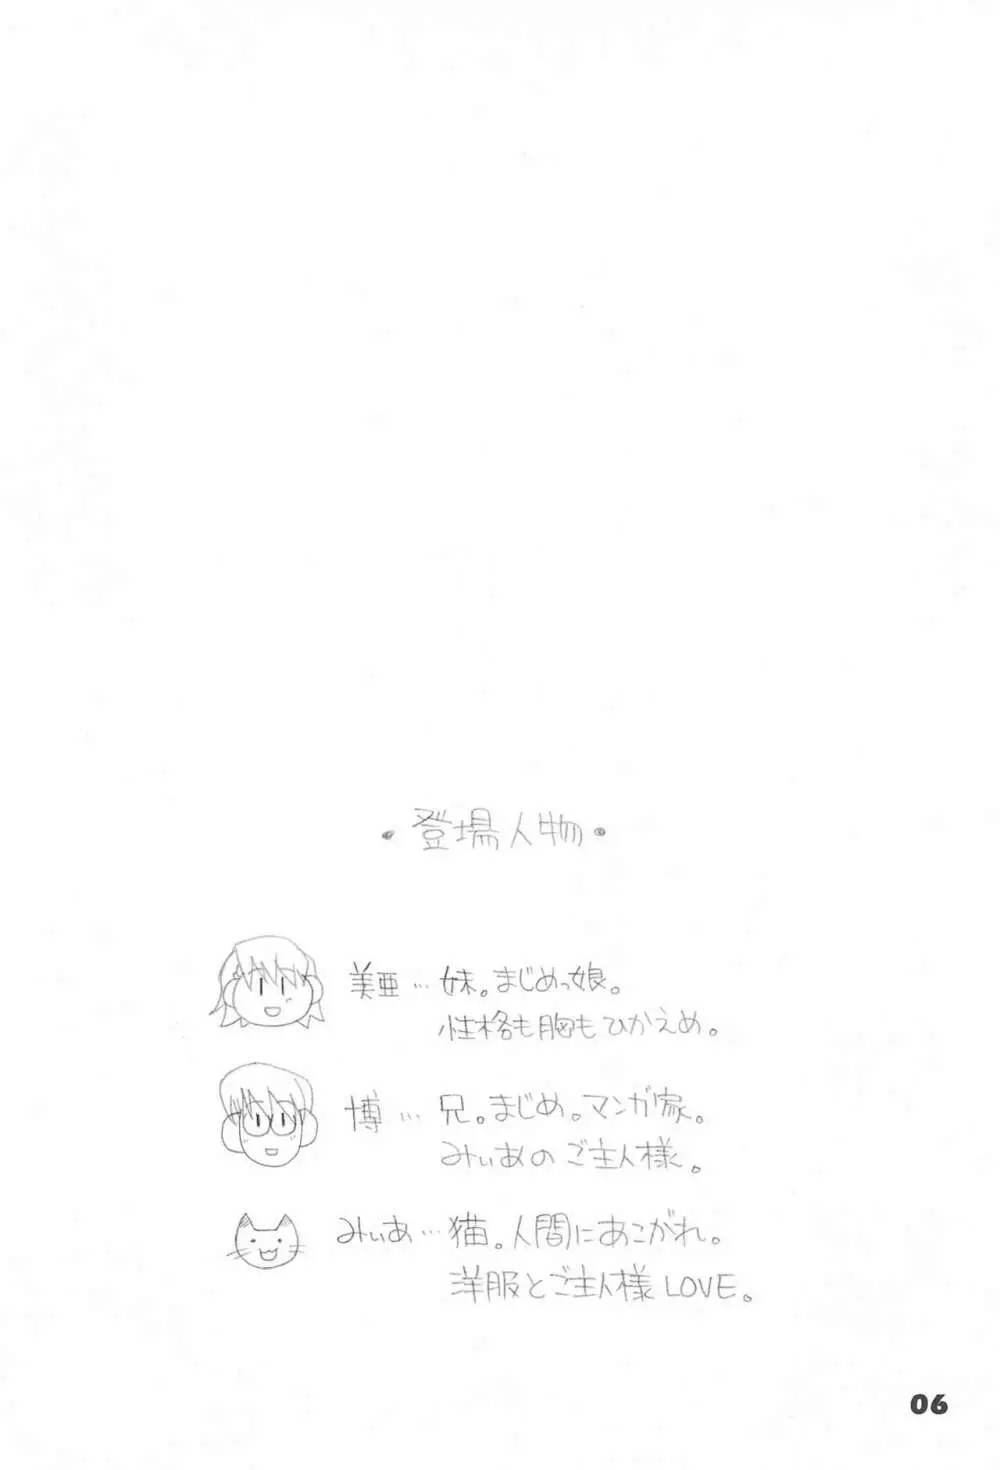 ・登場人物・
美亜…妹。まじめっ娘。
性格も胸もひかえめ。
博…兄。まじめ。マンガ家。
みぃあのご主人様。
みぃあ…猫。人間にあこがれ。
洋服とご主人様LOVE。
06